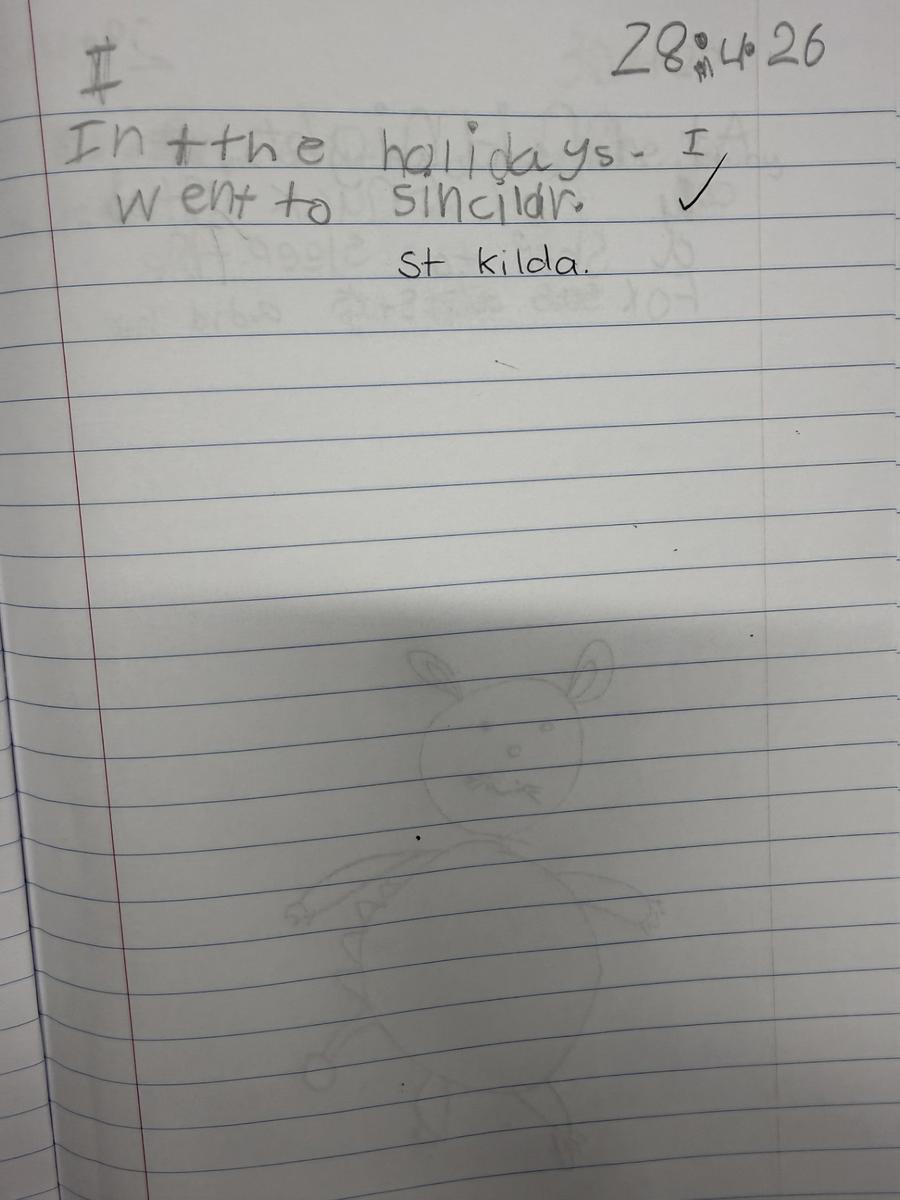 28.4.26
I
In tthe holidays. I
went to sincildr.
St kilda.